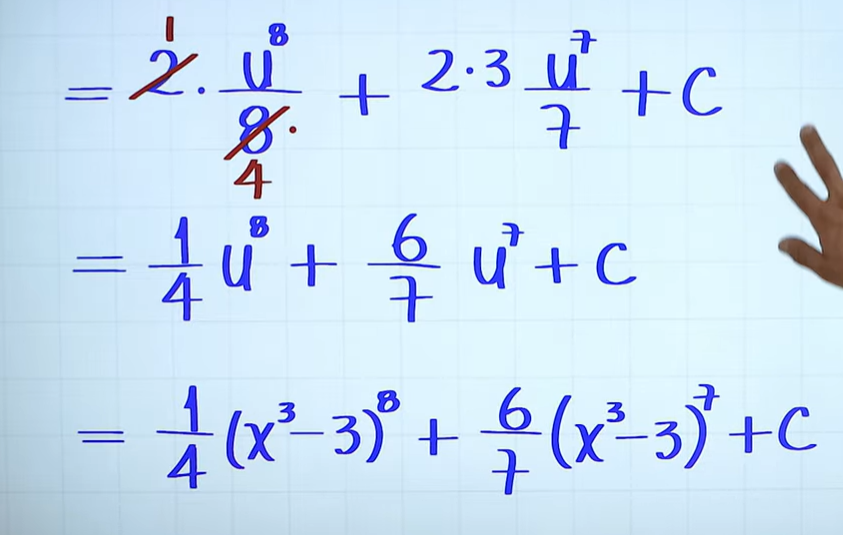 = 2̸¹ · u⁸/8̸₄ · + 2·3 u⁷/7 + C
= 1/4 u⁸ + 6/7 u⁷ + C
= 1/4 (x³-3)⁸ + 6/7 (x³-3)⁷ + C